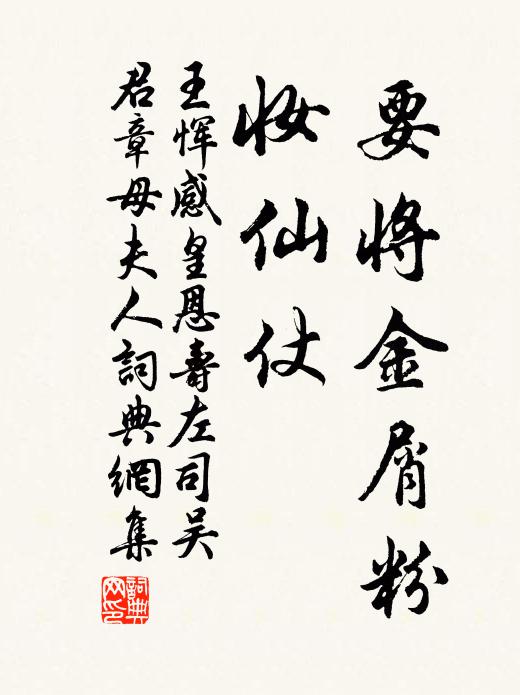 要将金屑粉
妆仙仗
王恽感皇恩壽左司吴
君章母夫人詞典網集
詞典网印